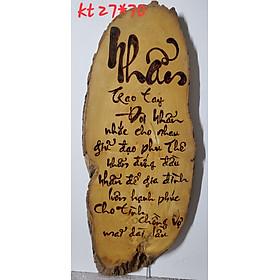 kt 27*70
Nhẫn
Trao tay
Đôi nhẫn
nhắc cho nhau
giữ đạo phu thê
nhẫn đứng đầu
nhẫn để gia đình
luôn hạnh phúc
cho tình
chồng vợ
mãi dài lâu